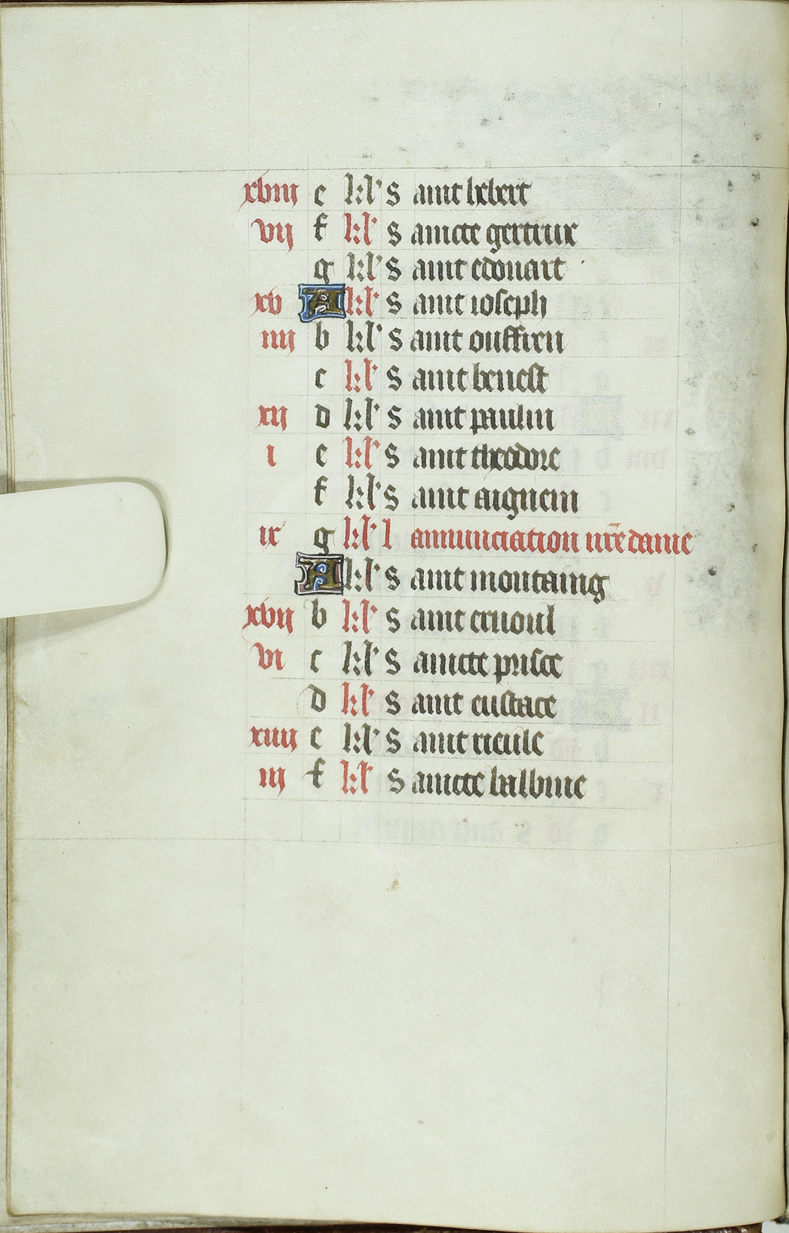 xviii e kl' S aint hebert
vii f kl' S aincte gertrux
g kl' S aint edouart
xv A kl' S aint ioseph
iiii b kl' S aint ouffren
c kl' S aint benest
xii d kl' S aint paulin
i e kl' S aint theodore
f kl' S aint aignein
ix g kl' l annunciation nr̄e dame
A kl' S aint montaing
xvii b kl' S aint ernoul
vi c kl' S aincte prisce
d kl' S aint eustace
xiiii e kl' S aint rieule
iii f kl' S aincte balbine